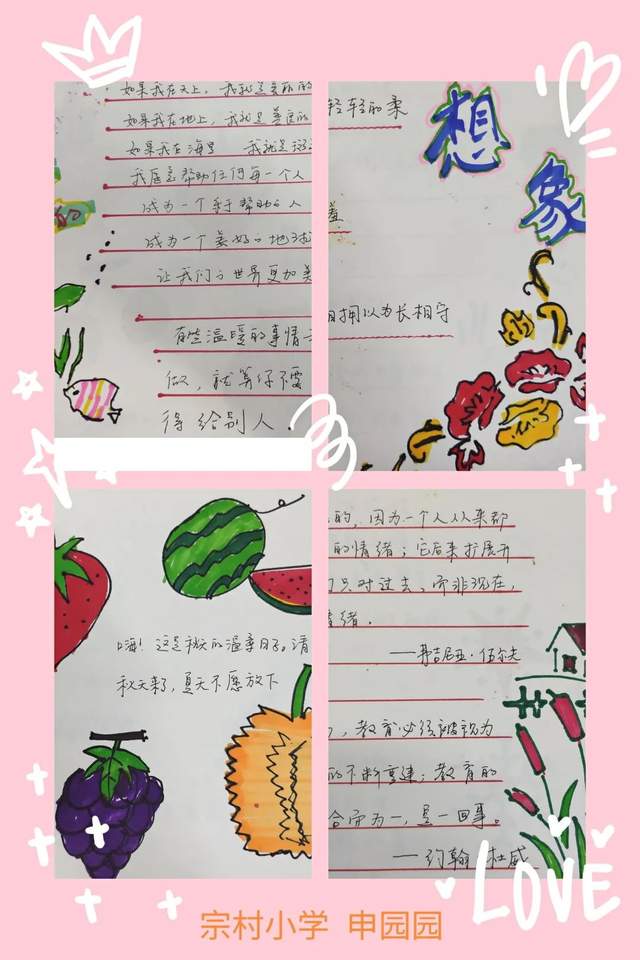 如果我在天上,我就是美丽的
如果我在地上,我就是美丽的
如果我在海里 我就是
我愿意帮助任何每一个人
成为一个乐于帮助的人
成为一个美好的地球
让我们的世界更加美
有些温暖的事情
做,就算你不要
得给别人.
轻轻的柔
想象
拥以为长相守
嗨!这是秋天的温柔日子。请
秋天来了,夏天不愿放下
的,因为一个人从来都
的情绪;它后来扩展开
只对过去、而非现在,
情绪.
——弗吉尼亚·伍尔夫
,教育必须被视为
的不断重建;教育的
合而为一,是一回事。
——约翰 杜威
LOVE
宗村小学 申园园